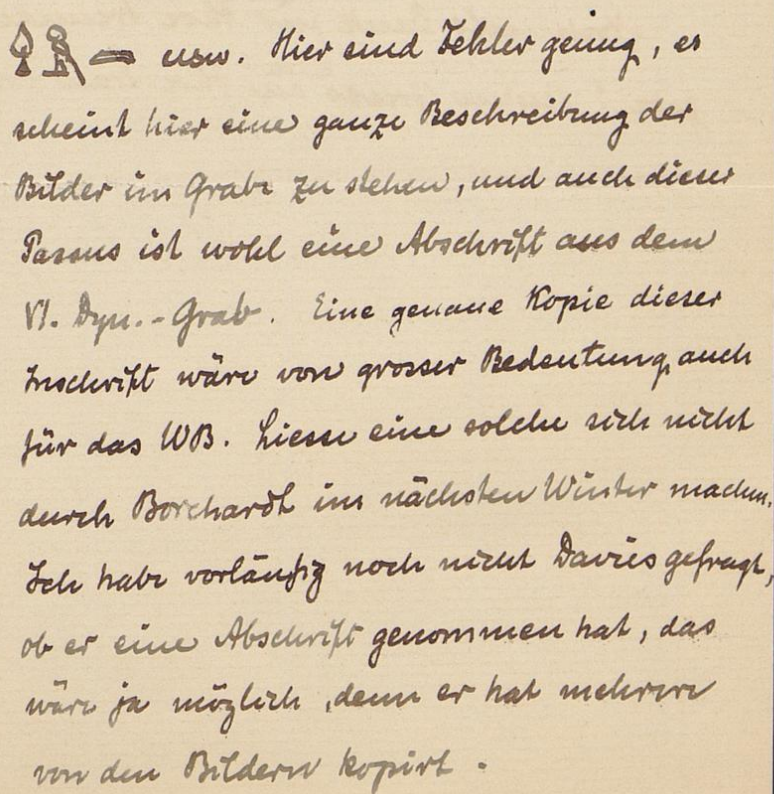 usw. Hier sind Fehler genug, es
scheint hier eine ganze Beschreibung der
Bilder im Grabe zu stehen, und auch dieser
Passus ist wohl eine Abschrift aus dem
VI. Dyn.-Grab. Eine genaue Kopie dieser
Inschrift wäre von grosser Bedeutung, auch
für das WB. Liesse eine solche sich nicht
durch Borchardt im nächsten Winter machen.
Ich habe vorläufig noch nicht Davies gefragt,
ob er eine Abschrift genommen hat, das
wäre ja möglich, denn er hat mehrere
von den Bildern kopirt.